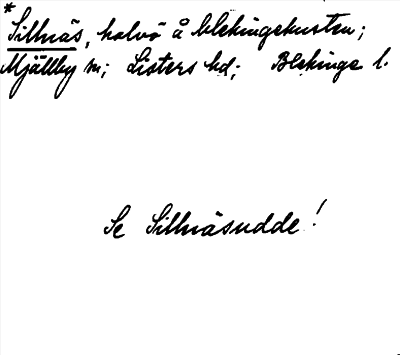 * Sillnäs, halvö å blekingekusten;
Mjällby sn; Listers hd; Blekinge l.
Se Sillnäsudde!